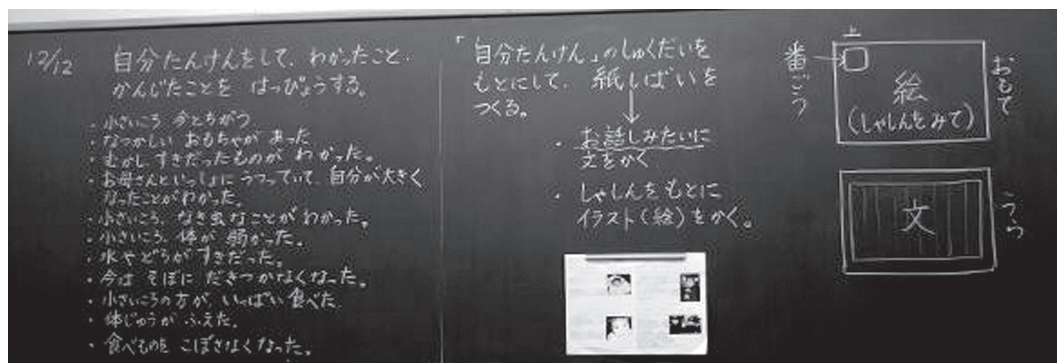 12/12
自分たんけんをして、わかったこと、
かんじたことを はっぴょうする。
・小さいころ 今とちがう
・なつかしい おもちゃが あった
・むかし すきだったものが わかった。
・お母さんといっしょに うつっていて、自分が大きく
なったことがわかった。
・小さいころ なき虫なことがわかった。
・小さいころ 体が 弱かった。
・水やどうがすきだった。
・今は そぼに だきつかなくなった。
・小さいころの方が、いっぱい食べた。
・体じゅうが ふえた。
・食べものを こぼさなくなった。
「自分たんけん」のしゅくだいを
もとにして、紙しばいを
つくる。
・お話しみたいに
文をかく
・しゃしんをもとに
イラスト(絵)をかく。
上
番ごう
絵
(しゃしんをみて)
おもて
文
うら